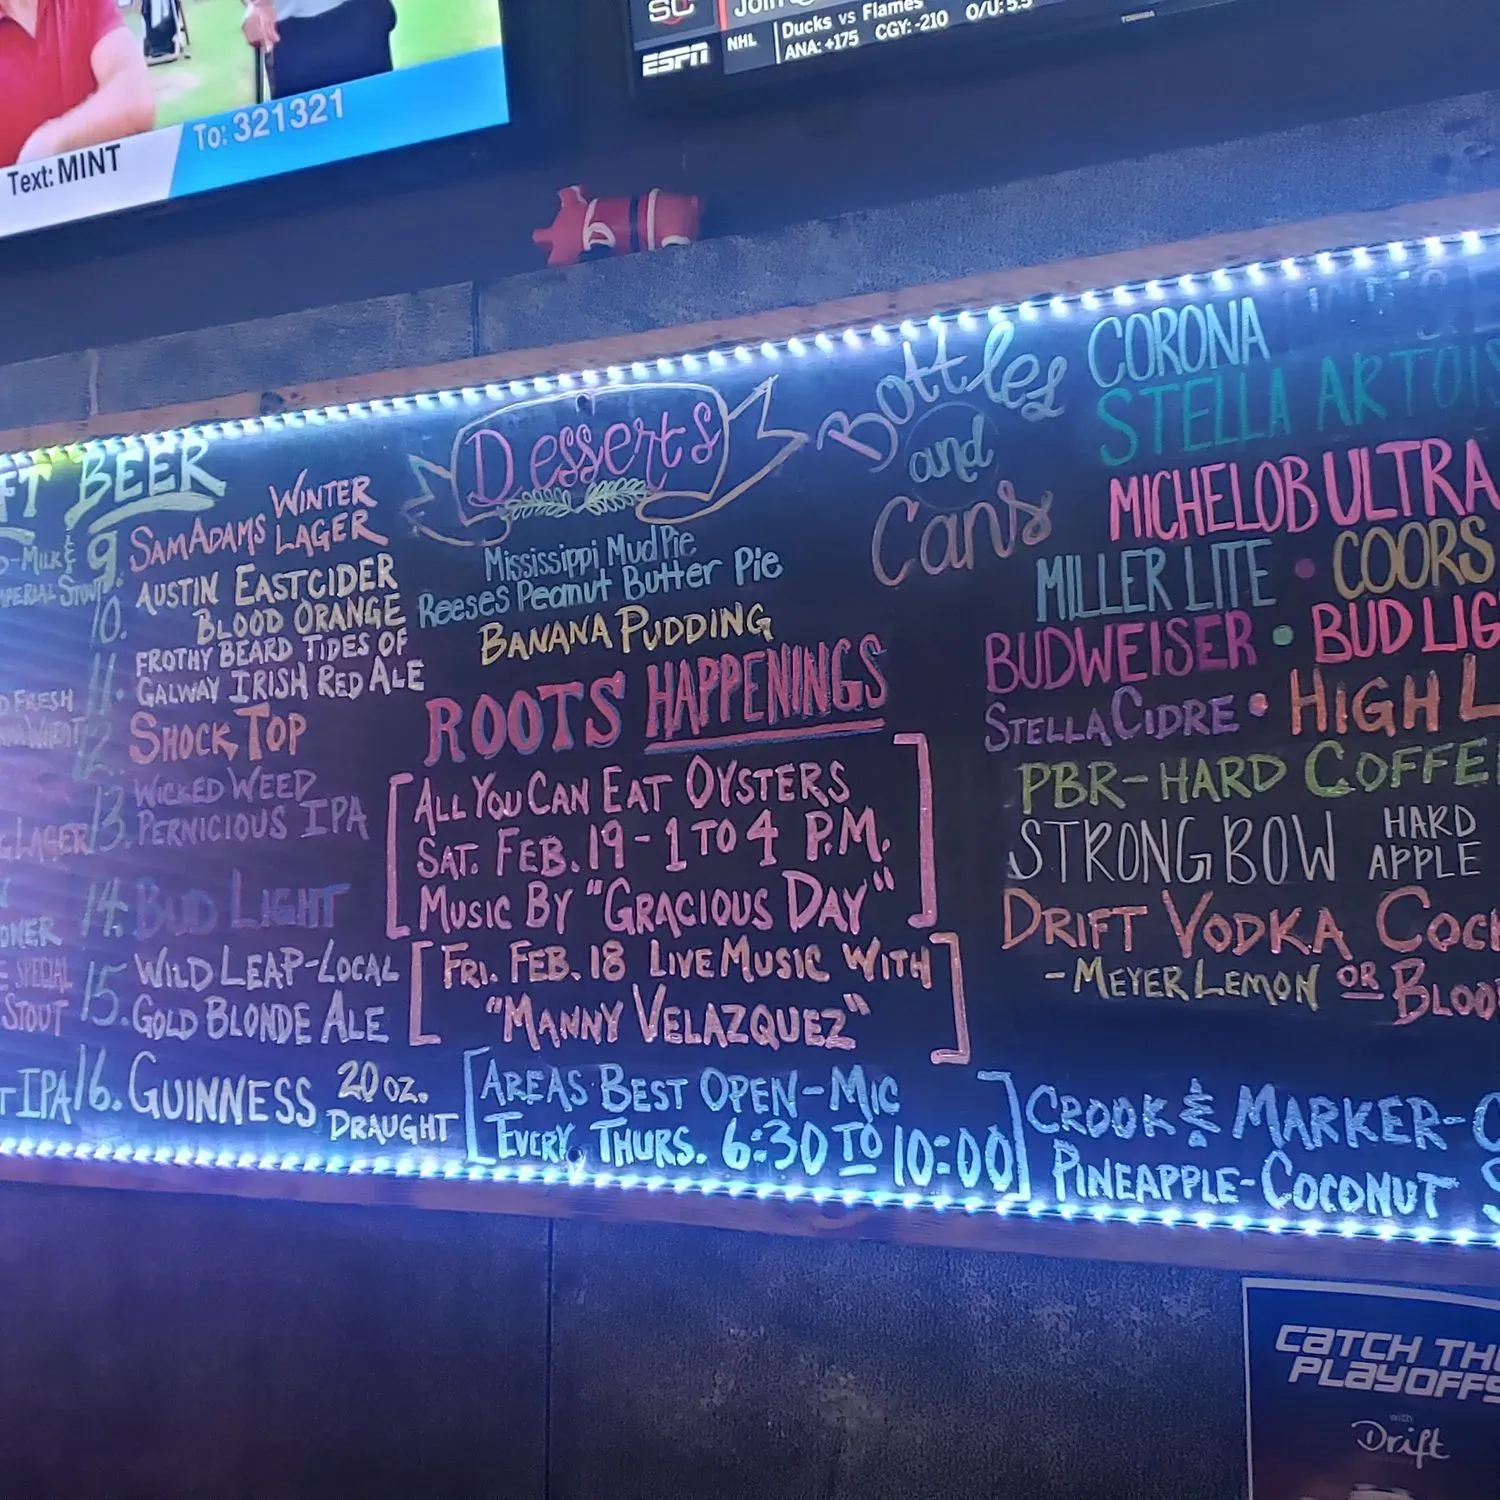 Text: MINT
To: 321321
SC
ESPN
Join
NHL
Ducks vs Flames
ANA: +175 CGY: -210 O/U: 5.5
TOSHIBA
BEER
MILK &
STOUT
FRESH
LAGER
SPECIAL
STOUT
IPA
9. SAMADAMS WINTER LAGER
10. AUSTIN EASTCIDER
BLOOD ORANGE
11. FROTHY BEARD TIDES OF
GALWAY IRISH RED ALE
12. SHOCK TOP
13. WICKED WEED
PERNICIOUS IPA
14. BUD LIGHT
15. WILD LEAP-LOCAL
GOLD BLONDE ALE
16. GUINNESS 20 OZ.
DRAUGHT
Desserts
Mississippi Mud Pie
Reeses Peanut Butter Pie
BANANA PUDDING
ROOTS HAPPENINGS
ALL YOU CAN EAT OYSTERS
SAT. FEB. 19 - 1 TO 4 P.M.
MUSIC BY "GRACIOUS DAY"
FRI. FEB. 18 LIVE MUSIC WITH
"MANNY VELAZQUEZ"
AREAS BEST OPEN-MIC
EVERY THURS. 6:30 TO 10:00
Bottles
and
Cans
CORONA
STELLA ARTOIS
MICHELOB ULTRA
MILLER LITE • COORS
BUDWEISER • BUD LIG
STELLA CIDRE • HIGH L
PBR-HARD COFFE
STRONGBOW HARD
APPLE
DRIFT VODKA COC
-MEYER LEMON OR BLOO
CROOK & MARKER-C
PINEAPPLE-COCONUT
CATCH THE
PLAYOFFS
with
Drift